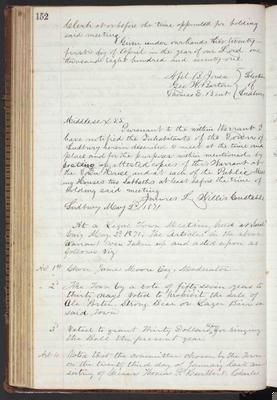 152
Clerk at or before the time appointed for holding
said meeting
Given under our hands this twenty
first day of April in the year of our Lord one
thousand eight hundred and seventy one.
Apl. B. Jones } Selectmen
Geo. H. Barton } of
Thomas E. Bent } Sudbury
Middlesex SS.
Pursuant to the within Warrant I
have notified the Inhabitants of the Town of
Sudbury herein described to meet at the time and
place and for the purposes within mentioned by
posting up attested copies of this Warrant at
the Town House and at each of the Public Meet
ing Houses two Sabbaths at least before the time of
holding said meeting
James L. Willis Constable
Sudbury May 2d 1871.
At a Legal Town Meeting held at Sud
bury May 2d 1871, the Articles in the above
Warrant were taken up and acted upon as
follows viz
Art 1st Chose James Moore Esq. Moderator
" 2d The Town by a vote of fifty seven yeas to
thirty nays voted to prohibit the sale of
Ale Porter Strong Beer or Lager Beer in
said Town
" 3d Voted to grant Thirty Dollars for ringing
the Bell the present year
Art 4. Voted that the committee chosen by the Town
on the twenty third day of January last con
sisting of Thomas P. Hurlbut